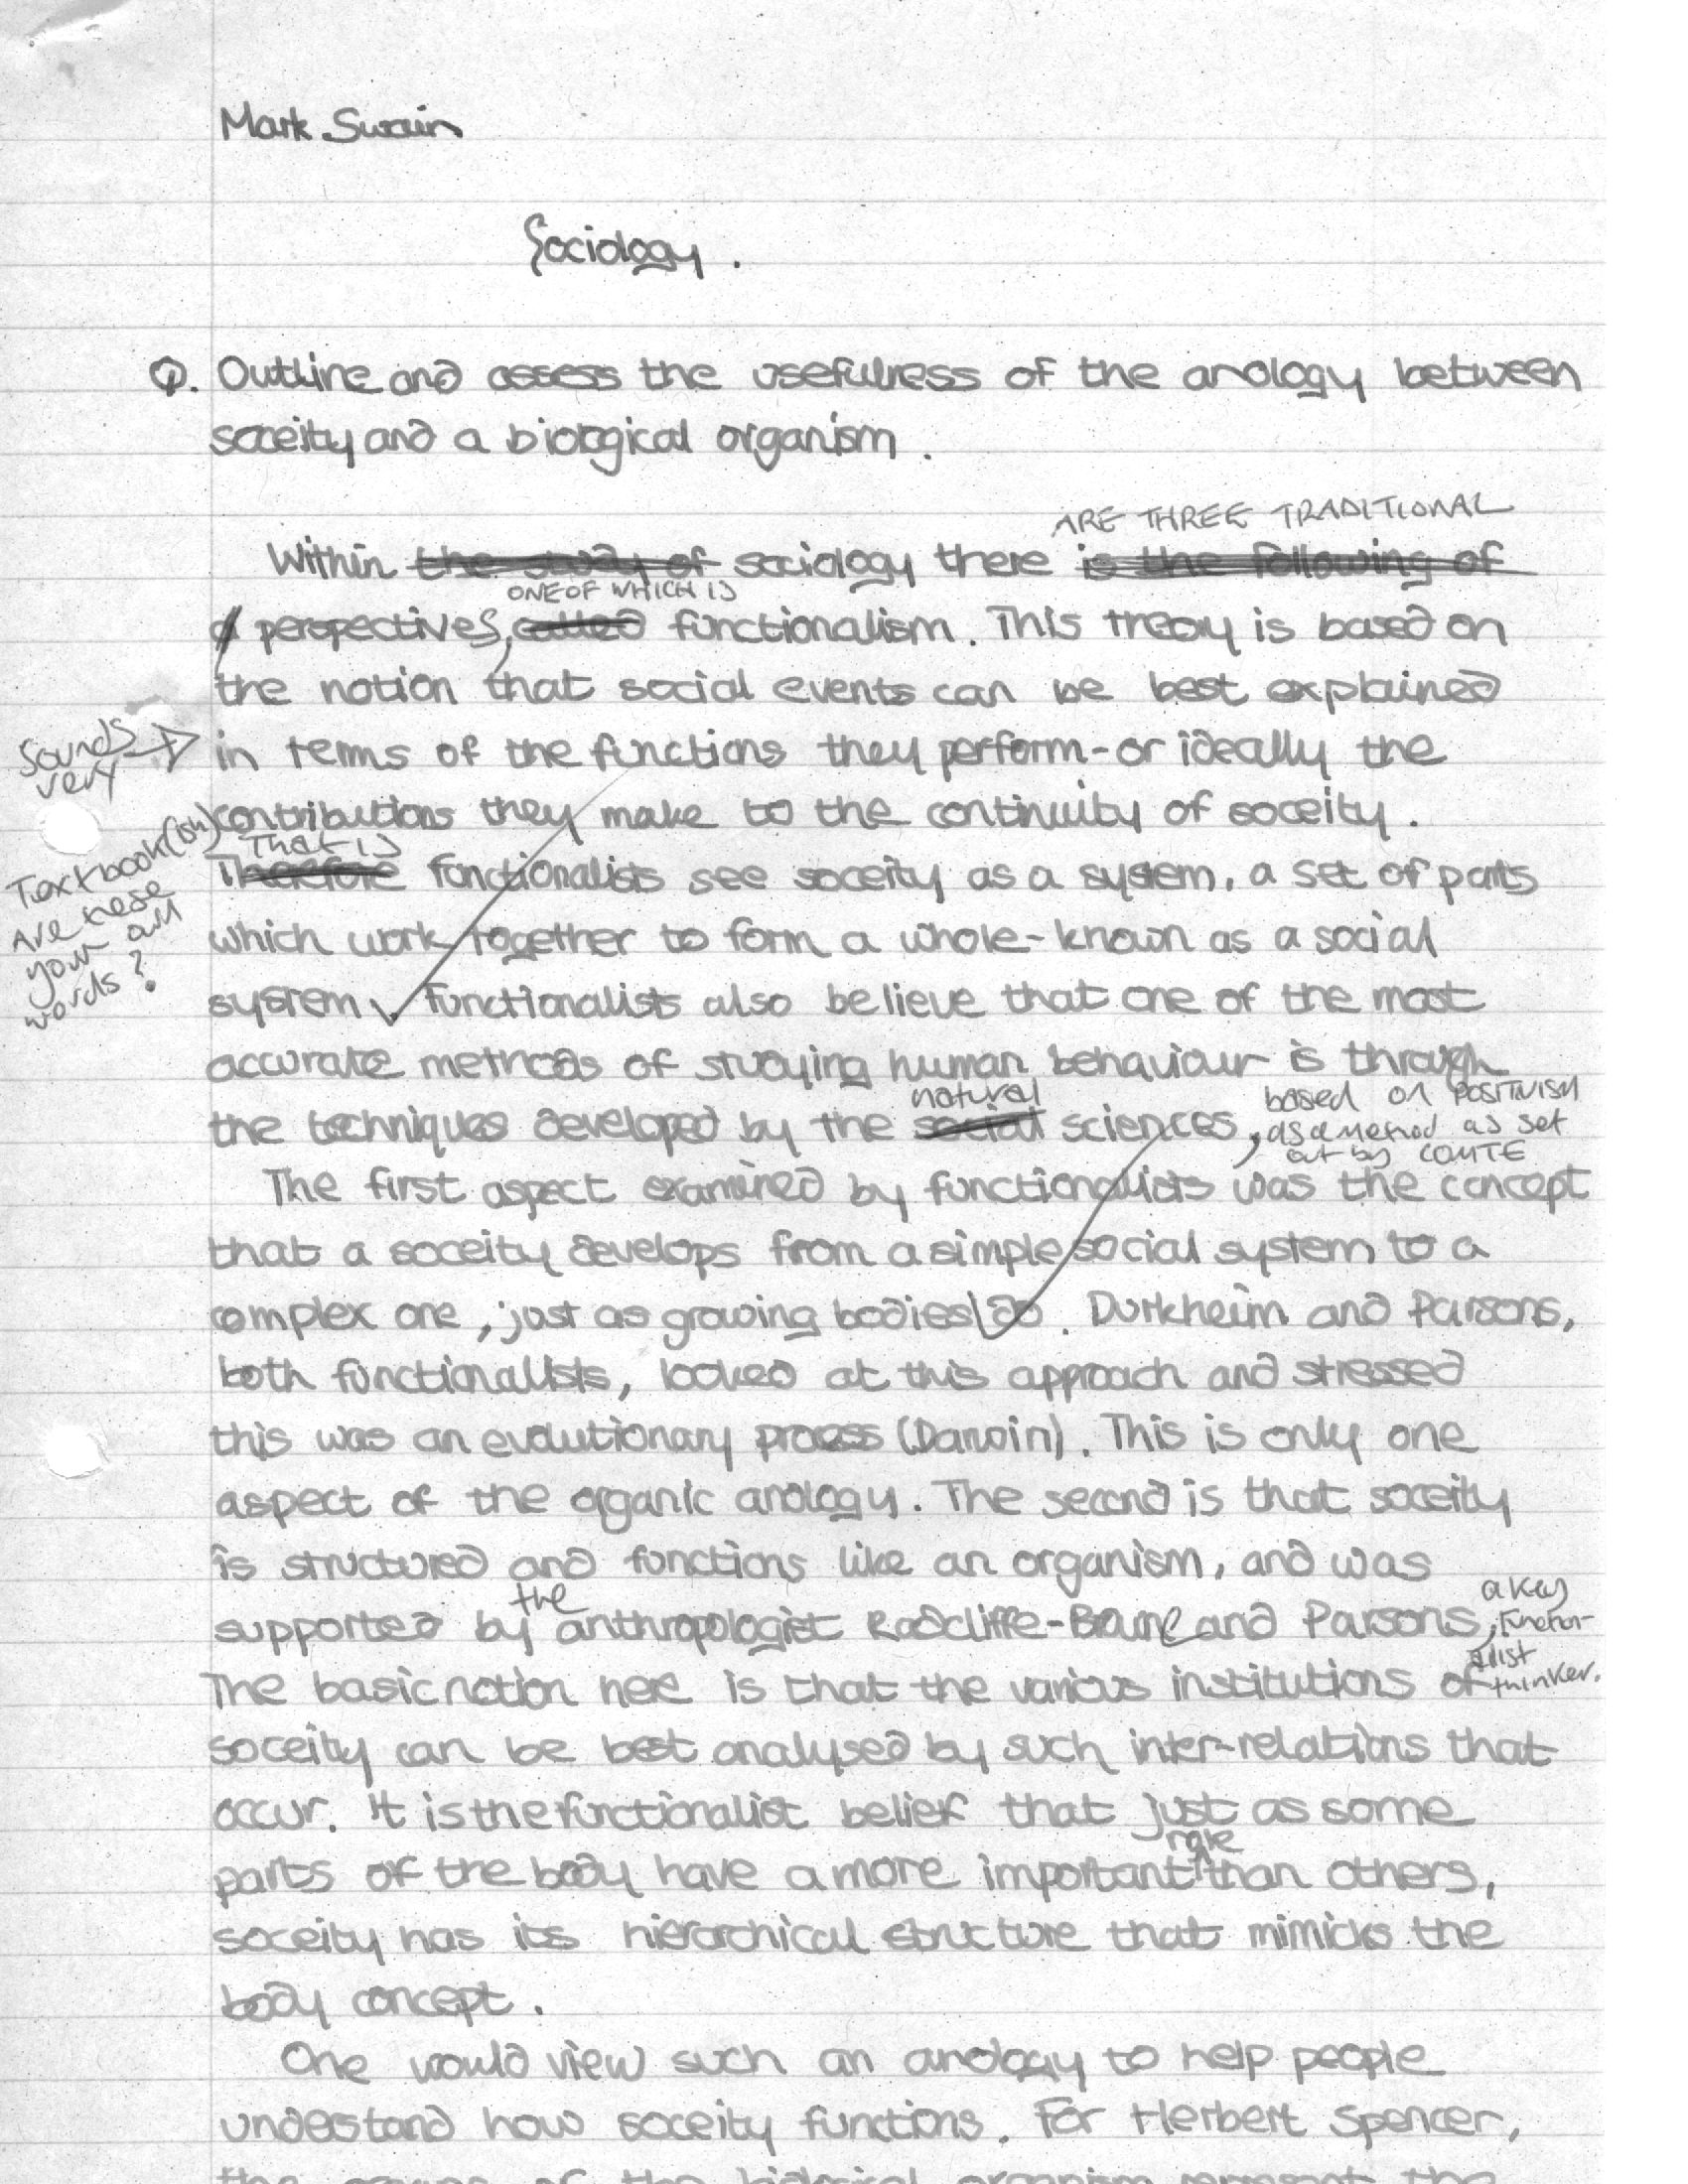 Mark Swain
Sociology.
Q. Outline and assess the usefulness of the anology between
soceity and a biological organism.
ARE THREE TRADITIONAL
Within the study of sociology there is the following of
ONE OF WHICH IS
a perspectives, called functionalism. This theory is based on
the notion that social events can be best explained
Sounds very Textbook(ish) Are these your own words?
in terms of the functions they perform - or ideally the
contributions they make to the continuity of soceity.
That is
Therefore functionalists see soceity as a system, a set of parts
which work together to form a whole - known as a social
system. Functionalists also believe that one of the most
accurate methods of studying human behaviour is through
natural
the techniques developed by the social sciences, based on POSITIVISM
as a method as set
out by COMTE
The first aspect examined by functionalists was the concept
that a soceity develops from a simple social system to a
complex one, just as growing bodies do. Durkheim and Parsons,
both functionalists, looked at this approach and stressed
this was an evolutionary process (Darwin). This is only one
aspect of the organic anology. The second is that soceity
is structured and functions like an organism, and was
the
supported by anthropologist Radcliffe-Browne and Parsons, a key Functionalist thinker.
The basic notion here is that the various institutions of
soceity can be best analysed by such inter-relations that
occur. It is the functionalist belief that just as some
role
parts of the body have a more important than others,
soceity has its hierarchical structure that mimicks the
body concept.
One would view such an anology to help people
understand how soceity functions. For Herbert Spencer,
the organs of the biological organism represent the